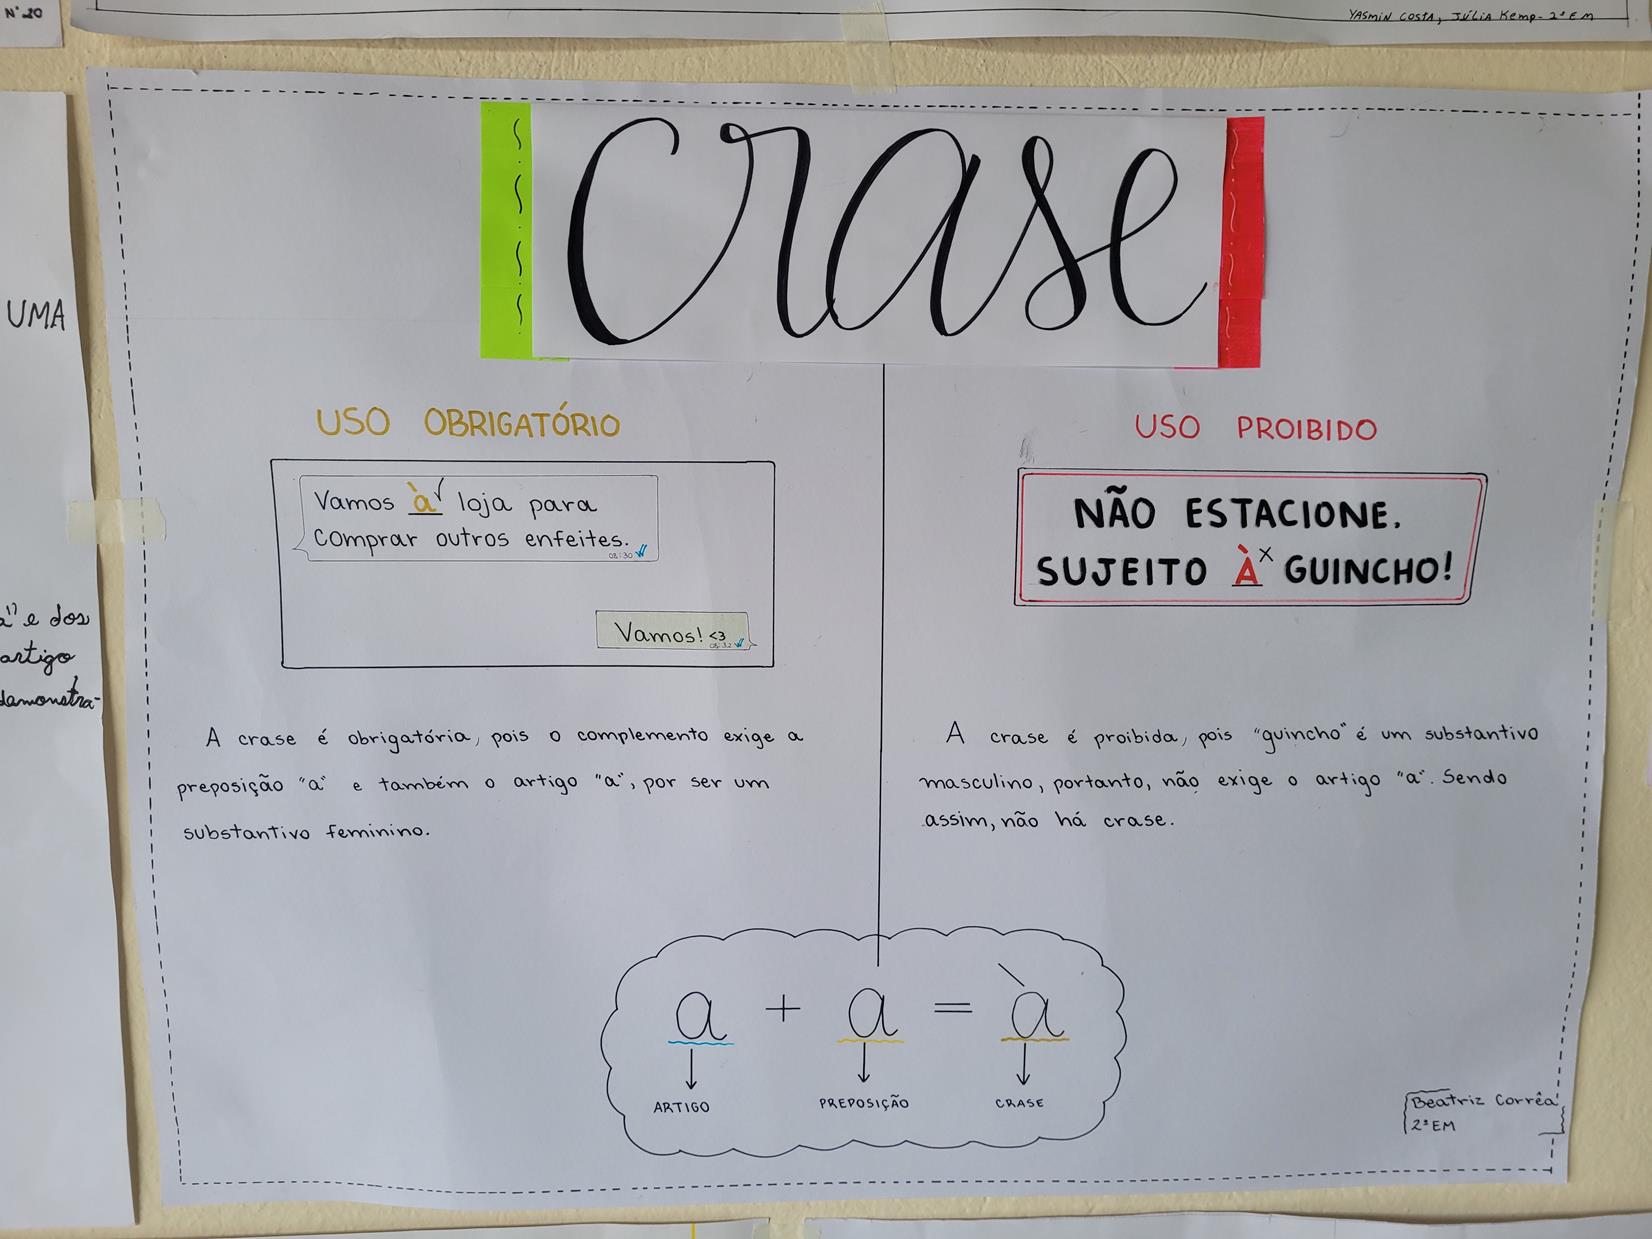 Nº 20
YASMIN COSTA, JÚLIA Kemp - 2ª EM
UMA
a") e dos
artigo
demonstra-
crase
USO OBRIGATÓRIO
Vamos à loja para
comprar outros enfeites.
08:30
Vamos! <3
08:32
A crase é obrigatória, pois o complemento exige a
preposição "a" e também o artigo "a", por ser um
substantivo feminino.
USO PROIBIDO
NÃO ESTACIONE.
SUJEITO À X GUINCHO!
A crase é proibida, pois "guincho" é um substantivo
masculino, portanto, não exige o artigo "a". Sendo
assim, não há crase.
a + a = à
ARTIGO PREPOSIÇÃO CRASE
Beatriz Corrêa
2ª EM